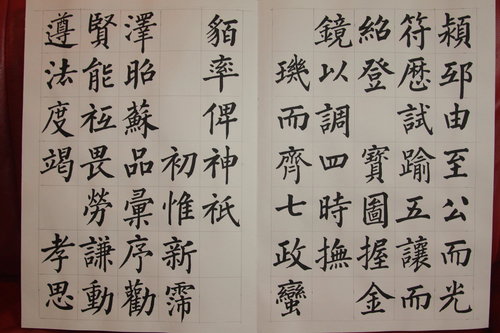 頴邳由至公而光
符歷試踰五讓而
紹登寶圖握金
鏡以調四時撫
璣而齊七政蠻
貊率俾神祇
初惟新霈
澤昭蘇品彙序勸
賢能祗畏勞謙動
遵法度竭孝思